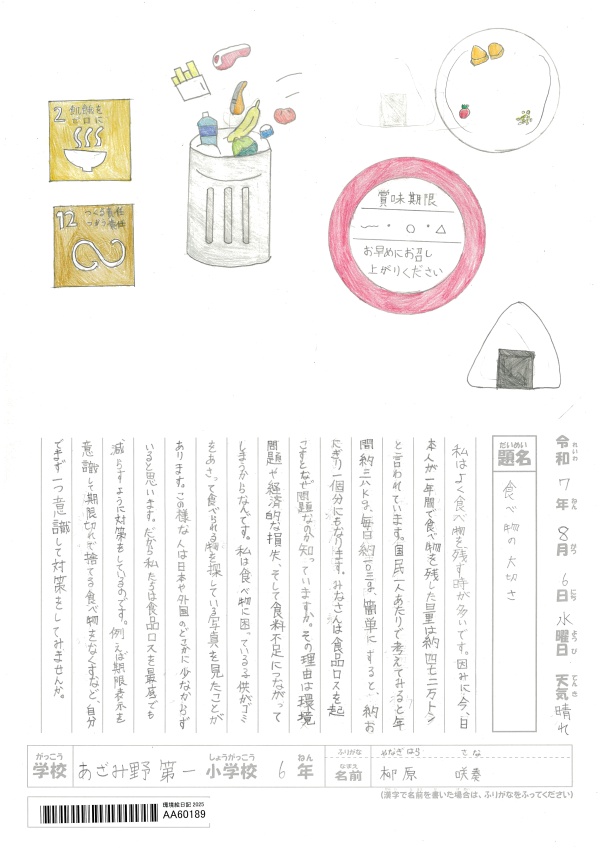 2 飢餓を
ゼロに
12 つくる責任
つかう責任
賞味期限
〜・○・△
お早めにお召し
上がりください
令和7年8月6日水曜日 天気晴れ
れいわ ねん がつ にち ようび てんき
だいめい
題名
食べ物の大切さ
私はよく食べ物を残す時が多いです。因みに今、日
本人が一年間で食べ物を残した量は約四七二万トン
と言われています。国民一人あたりで考えてみると年
間約三八kg、毎日約一〇三g、簡単にすると、約お
にぎり一個分にもなります。みなさんは食品ロスを起
こすとなぜ問題なのか知っていますか。その理由は環境
問題や経済的な損失、そして食料不足につながって
しまうからなんです。私は食べ物に困っている子供がゴミ
をあさって食べられる物を探している写真を見たことが
あります。この様な人は日本や外国のどこかに少なからず
いると思います。だから私たちは食品ロスを最低でも
減らすように対策をしているのです。例えば期限表示を
意識して期限切れで捨てる食べ物をなくすなど、自分
できず一つ意識して対策をしてみませんか。
がっこう しょうがっこう ねん
学校 あざみ野第一小学校 6年
ふりがな やなぎはら
なまえ
名前 柳原 咲奏
(漢字で名前を書いた場合は、ふりがなをふってください)
環境絵日記 2025
AA60189